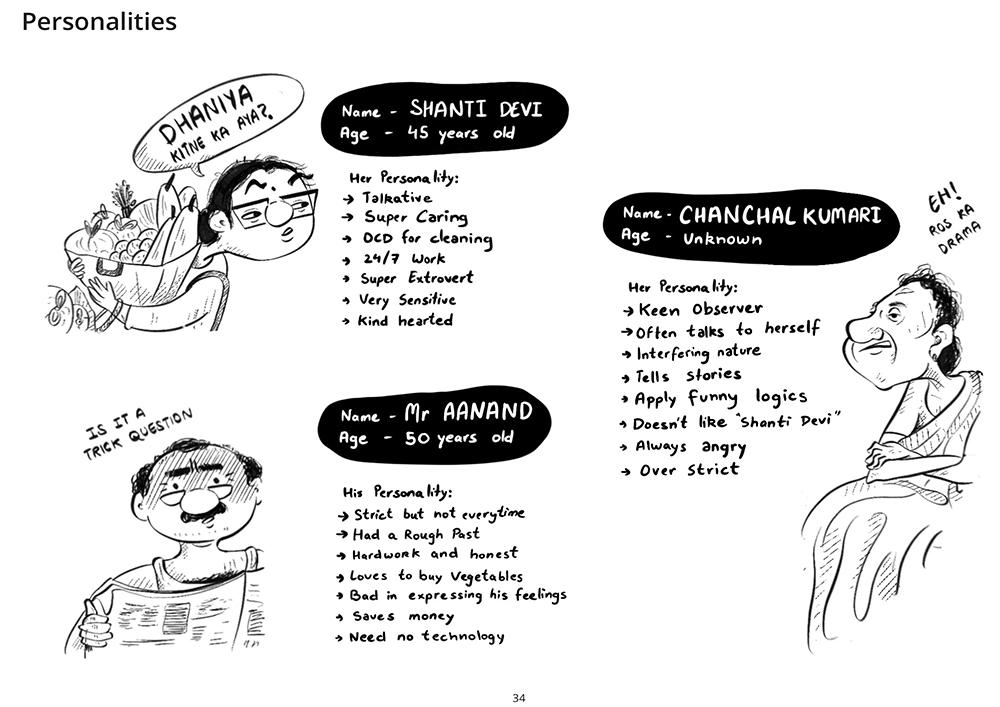 Personalities
DHANIYA
KITNE KA AYA?
Name - SHANTI DEVI
Age - 45 years old
Her Personality:
→ Talkative
→ Super Caring
→ OCD for cleaning
→ 24/7 Work
→ Super Extrovert
→ Very Sensitive
→ Kind hearted
IS IT A
TRICK QUESTION
Name - Mr AANAND
Age - 50 years old
His Personality:
→ Strict but not everytime
→ Had a Rough Past
→ Hardwork and honest
→ Loves to buy Vegetables
→ Bad in expressing his feelings
→ Saves money
→ Need no technology
EH!
ROS KA
DRAMA
Name - CHANCHAL KUMARI
Age - Unknown
Her Personality:
→ Keen Observer
→ Often talks to herself
→ Interfering nature
→ Tells stories
→ Apply funny logics
→ Doesn't like "Shanti Devi"
→ Always angry
→ Over strict
34